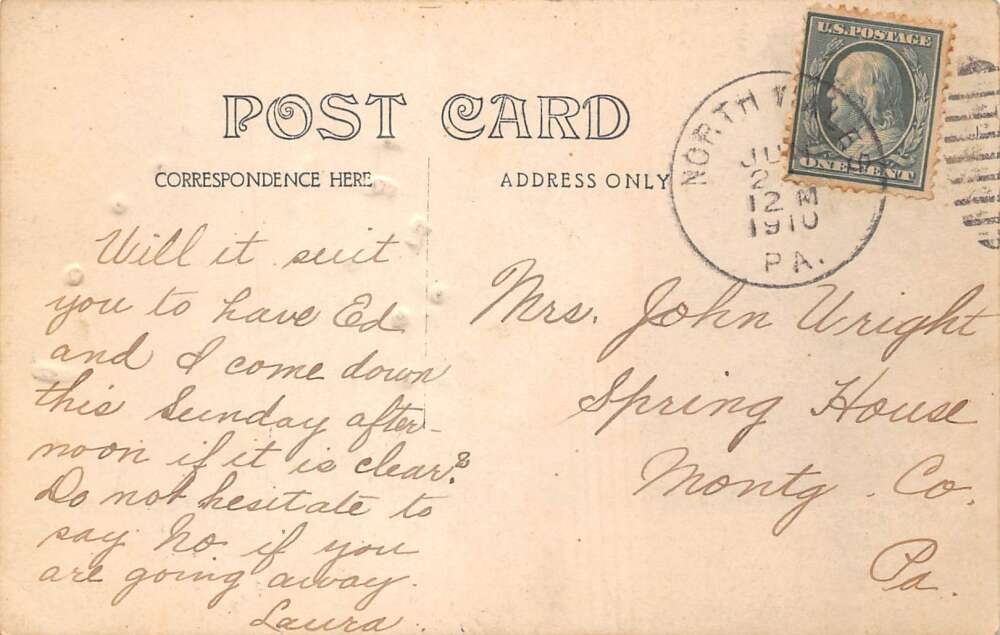 POST CARD
CORRESPONDENCE HERE
ADDRESS ONLY
U.S. POSTAGE
ONE CENT
NORTH
12 M
1910
PA.
Will it suit
you to have Ed
and I come down
this Sunday after-
noon if it is clear?
Do not hesitate to
say No if you
are going away.
Laura.
Mrs. John Wright
Spring House
Montg. Co.
Pa.